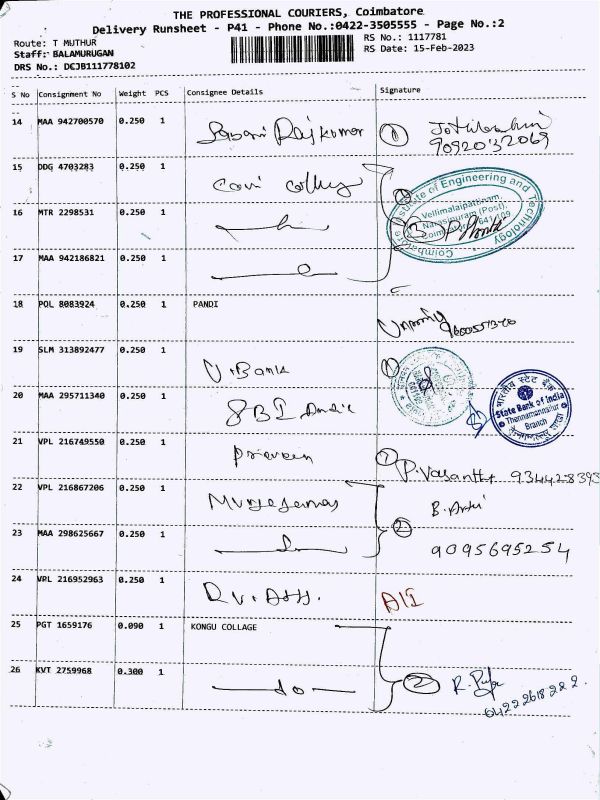 THE PROFESSIONAL COURIERS, Coimbatore
Delivery Runsheet - P41 - Phone No.:0422-3505555 - Page No.:2
Route: T MUTHUR
RS No.: 1117781
Staff: BALAMURUGAN
RS Date: 15-Feb-2023
DRS No.: DCJB111778102
S No Consignment No Weight PCS Consignee Details Signature
14 MAA 942700570 0.250 1 Rajkumar 1
9092032069
15 DDG 4703283 0.250 1
Coimbatore Institute of Engineering and Technology
Vellimalaipattinam,
Narasipuram (Post),
Coimbatore 641 109
16 MTR 2298531 0.250 1
17 MAA 942186821 0.250 1
18 POL 8083924 0.250 1 PANDI
19 SLM 313892477 0.250 1 U.Bank 1
20 MAA 295711340 0.250 1 SBI
भारतीय स्टेट बैंक
State Bank of India
Thennamanallur
Branch
21 VPL 216749550 0.250 1 Praveen 1 P.Vasanth 9344283
22 VPL 216867206 0.250 1 B.
23 MAA 298625667 0.250 1 2 9095695254
24 VPL 216952963 0.250 1
25 PGT 1659176 0.090 1 KONGU COLLAGE
26 KVT 2759968 0.300 1 - do - 2 R.
0422 2618222.